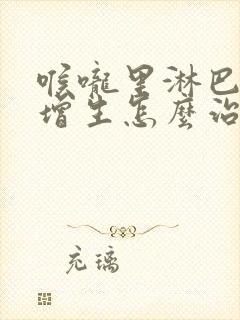 喉嚨里淋巴
增生怎麼治
充璃